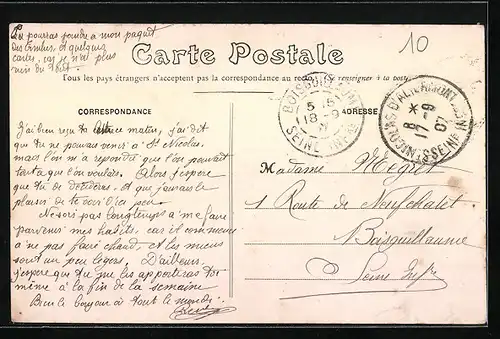 Tu pourras joindre à mon paquet
des timbres et quelques
cartes, car je n'ai plus
rien du tout
10
Carte Postale
Tous les pays étrangers n'acceptent pas la correspondance au recto (Se renseigner à la poste)
CORRESPONDANCE
ADRESSE
BOISGUILLAUME
5 15
18 -9
SEINE INFRE
ST NICOLAS D'ALIERMONT
8 *
17 -9
07
SEINE INFRE
J'ai bien reçu ta lettre ce matin, j'ai dit
que tu ne pouvais venir à St Nicolas,
mais l'on m'a répondu que l'on pouvait
tant que l'on voulait. Alors j'espère
que tu te décideras, et que j'aurais le
plaisir de te voir d'ici peu
Ne sois pas longtemps à me faire
parvenir mes habits, car il commence
à ne pas faire chaud, et les miens
sont un peu légers. D'ailleurs,
j'espère que tu me les apporteras toi
même à la fin de la semaine
Bien le bonjour à tout le monde
René
Madame Négret
1 Route de Neufchatel
Boisguillaume
Seine Infre